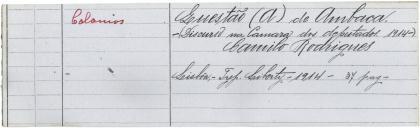 Colonias
Questão (A) do Ambaca.
(Discurso na Camara dos deputados 1914)
Camilo Rodrigues
Lisboa - Typ. Liberty - 1914 - 37 pag -